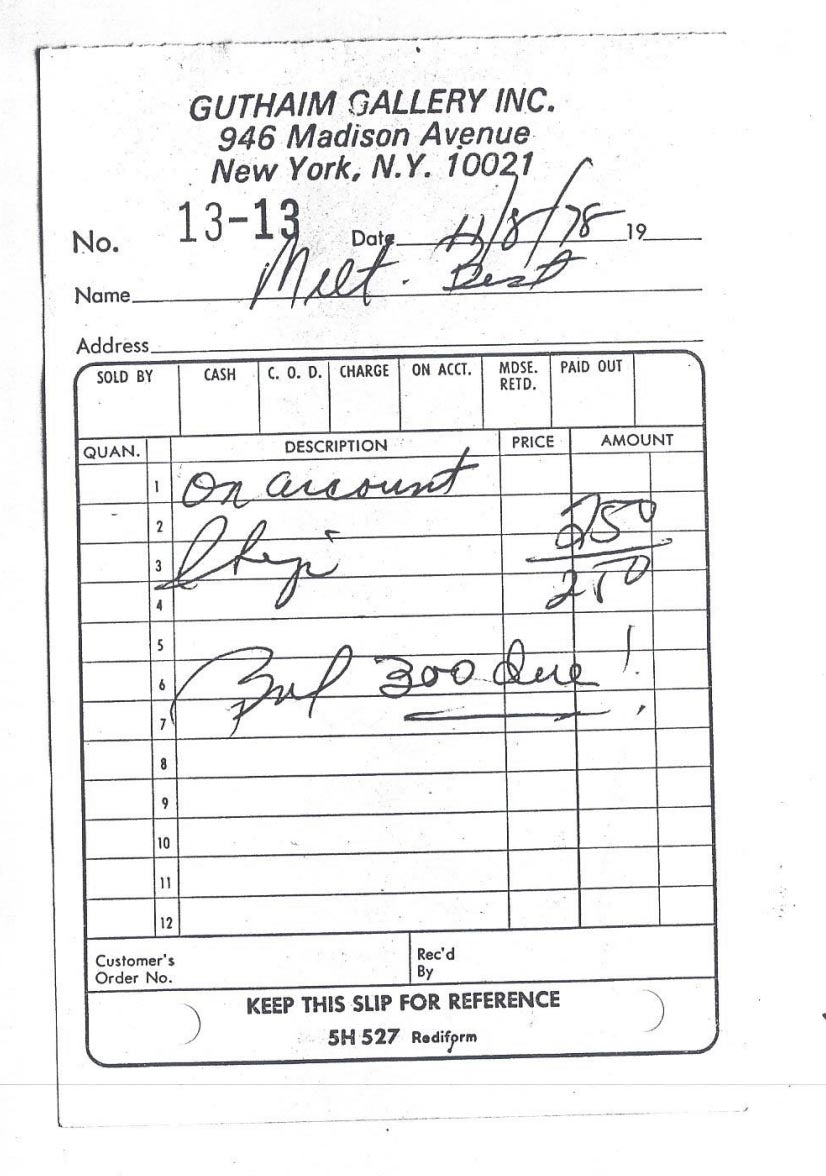 GUTHAIM GALLERY INC.
946 Madison Avenue
New York, N.Y. 10021
No. 13-13 Date 11/8/78 19
Name Milt. Best
Address
SOLD BY CASH C. O. D. CHARGE ON ACCT. MDSE. RETD. PAID OUT
QUAN. DESCRIPTION PRICE AMOUNT
1 On account
2 250
3
4 250
5
6 Bal 300 due!
7
8
9
10
11
12
Customer's Order No. Rec'd By
KEEP THIS SLIP FOR REFERENCE
5H 527 Rediform